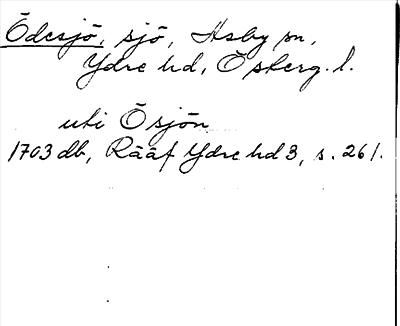 Ödesjö, sjö, Asby sn,
Ydre hd, Ösberg. l.
uti Ösjön
1703 db, Rääf Ydre hd 3, s. 261.